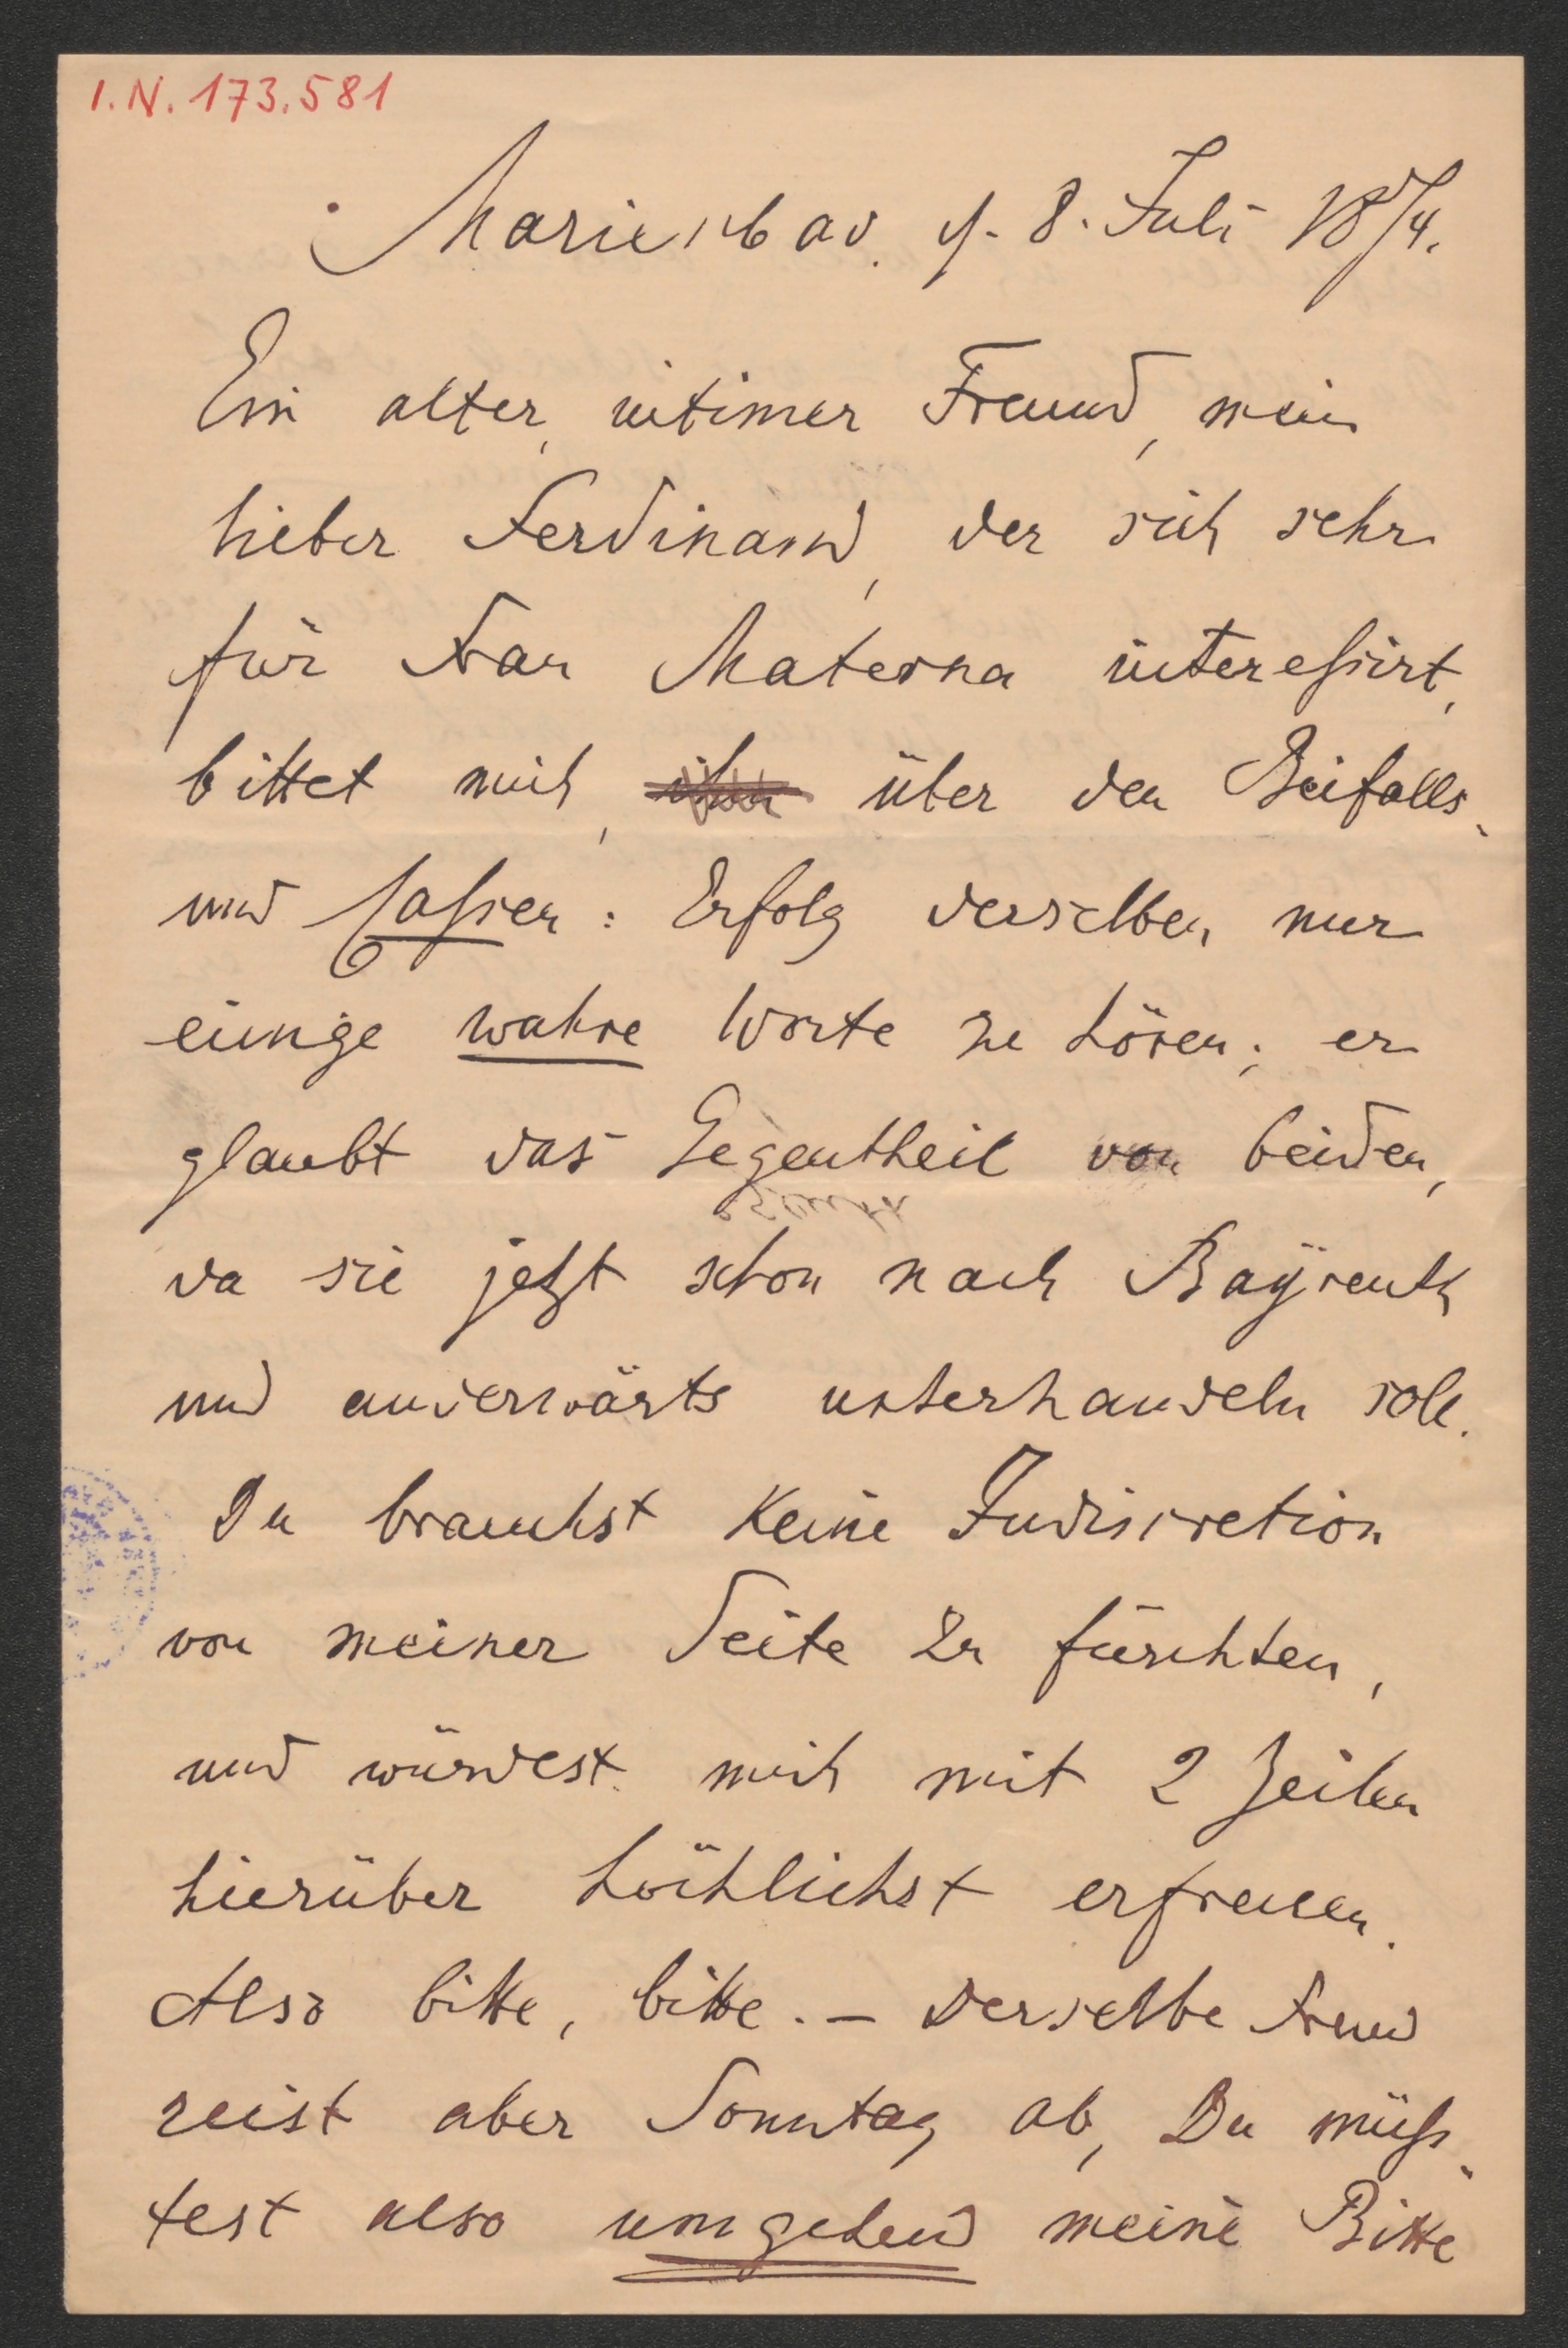 I.N. 173.581
Marienbad. d. 8. Juli 1874.
Ein alter, intimer Freund, mein
lieber Ferdinand, der sich sehr
für Frau Materna interessirt,
bittet mich, über den Beifalls-
und Cassen: Erfolg derselben nur
einige wahre Worte zu hören; er
glaubt das Gegentheil von beiden,
da sie jetzt schon nach Bayreuth
und anderwärts unterhandeln soll.
Du brauchst keine Indiscretion
von meiner Seite zu fürchten,
und würdest mich mit 2 Zeilen
hierüber höchlichst erfreuen.
Also bitte, bitte. – Derselbe Freund
reist aber Sonntag ab, Du müss-
test also umgehend meine Bitte